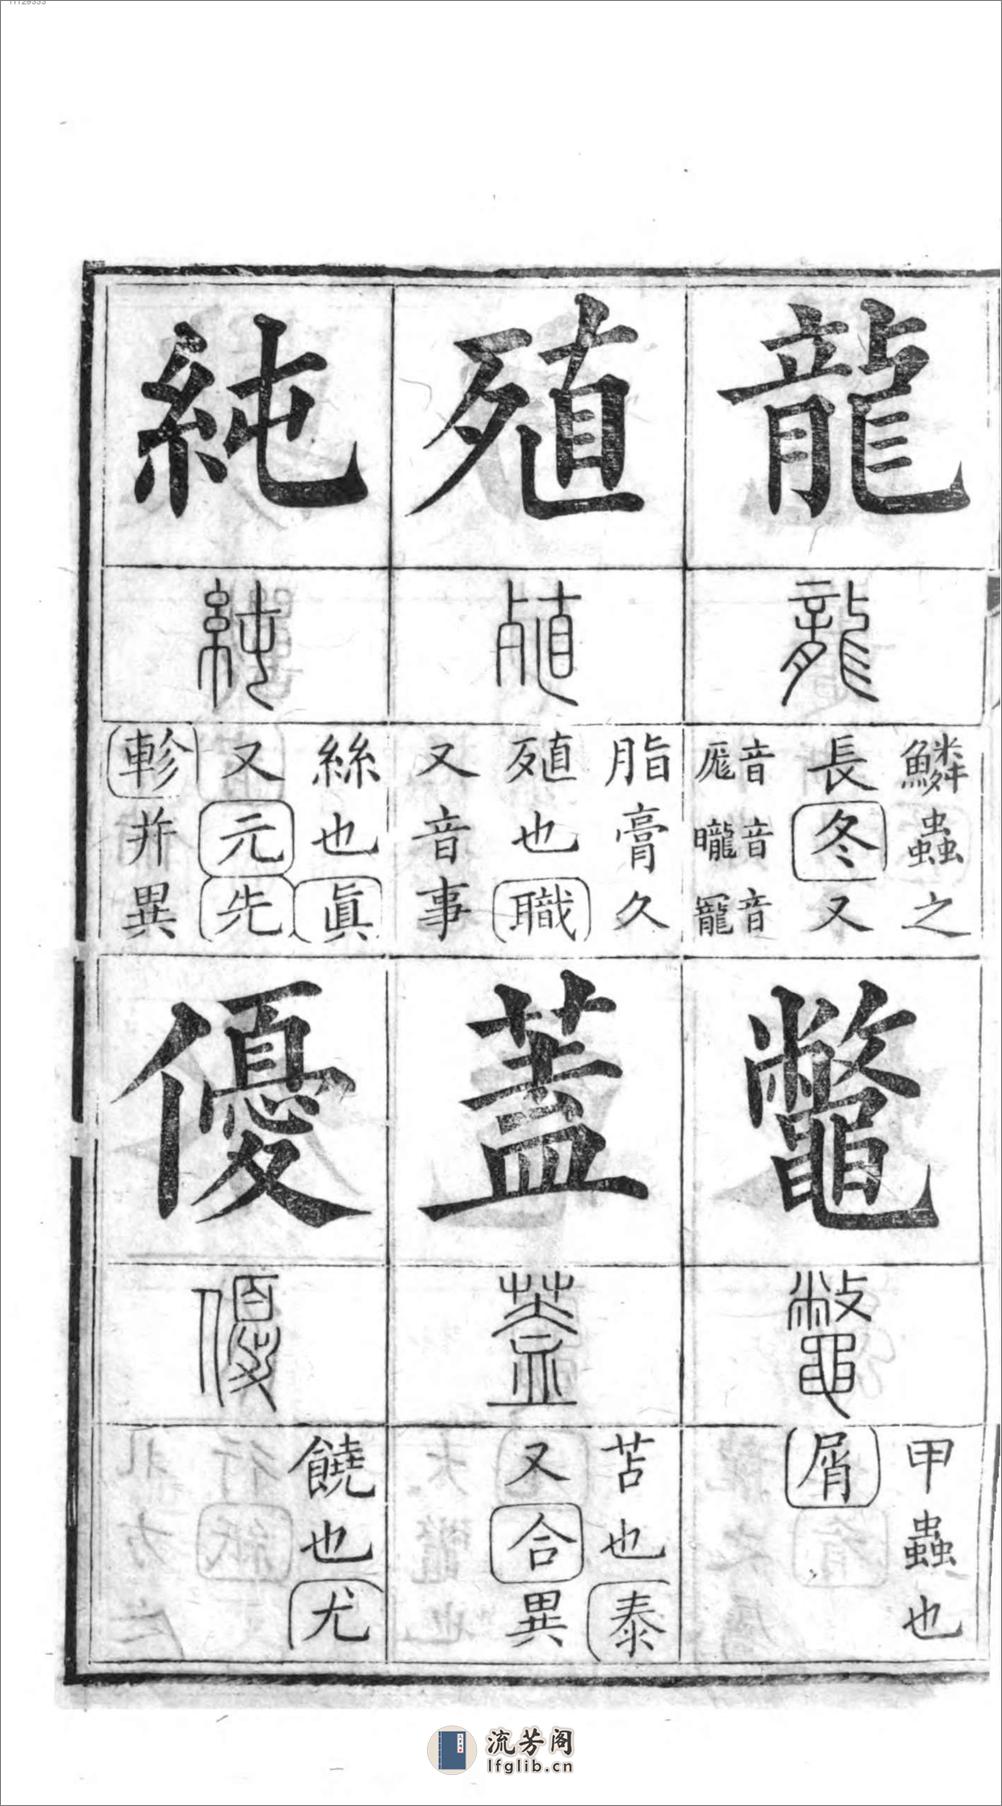 龍
龍
鱗蟲之
長冬又
音音音
厐曨寵
殖
殖
脂膏久
殖也職
又音事
純
純
絲也眞
又元先
軫并異
鼈
鼈
甲蟲也
屑
蓋
蓋
苫也泰
又合異
優
優
饒也尤
流芳阁
lfglib.cn